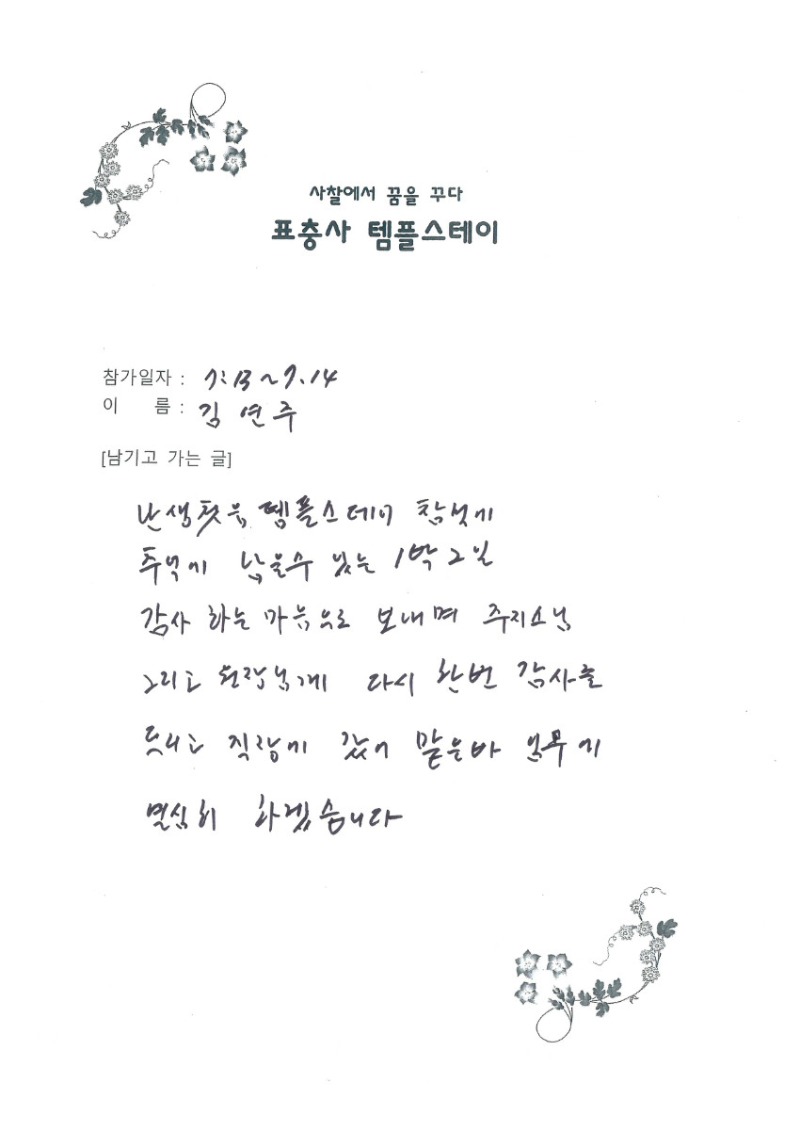 사찰에서 꿈을 꾸다
표충사 템플스테이
참가일자 : 7.13 ~ 7.14
이 름 : 김연주
[남기고 가는 글]
난생 첫음 템플스테이 참석에
추억에 남을수 있는 1박 2일
감사 하는 마음으로 보내며 주지스님
그리고 원장님께 다시 한번 감사를
드리고 직장에 갔어 맡은바 임무에
열심히 하겠습니다